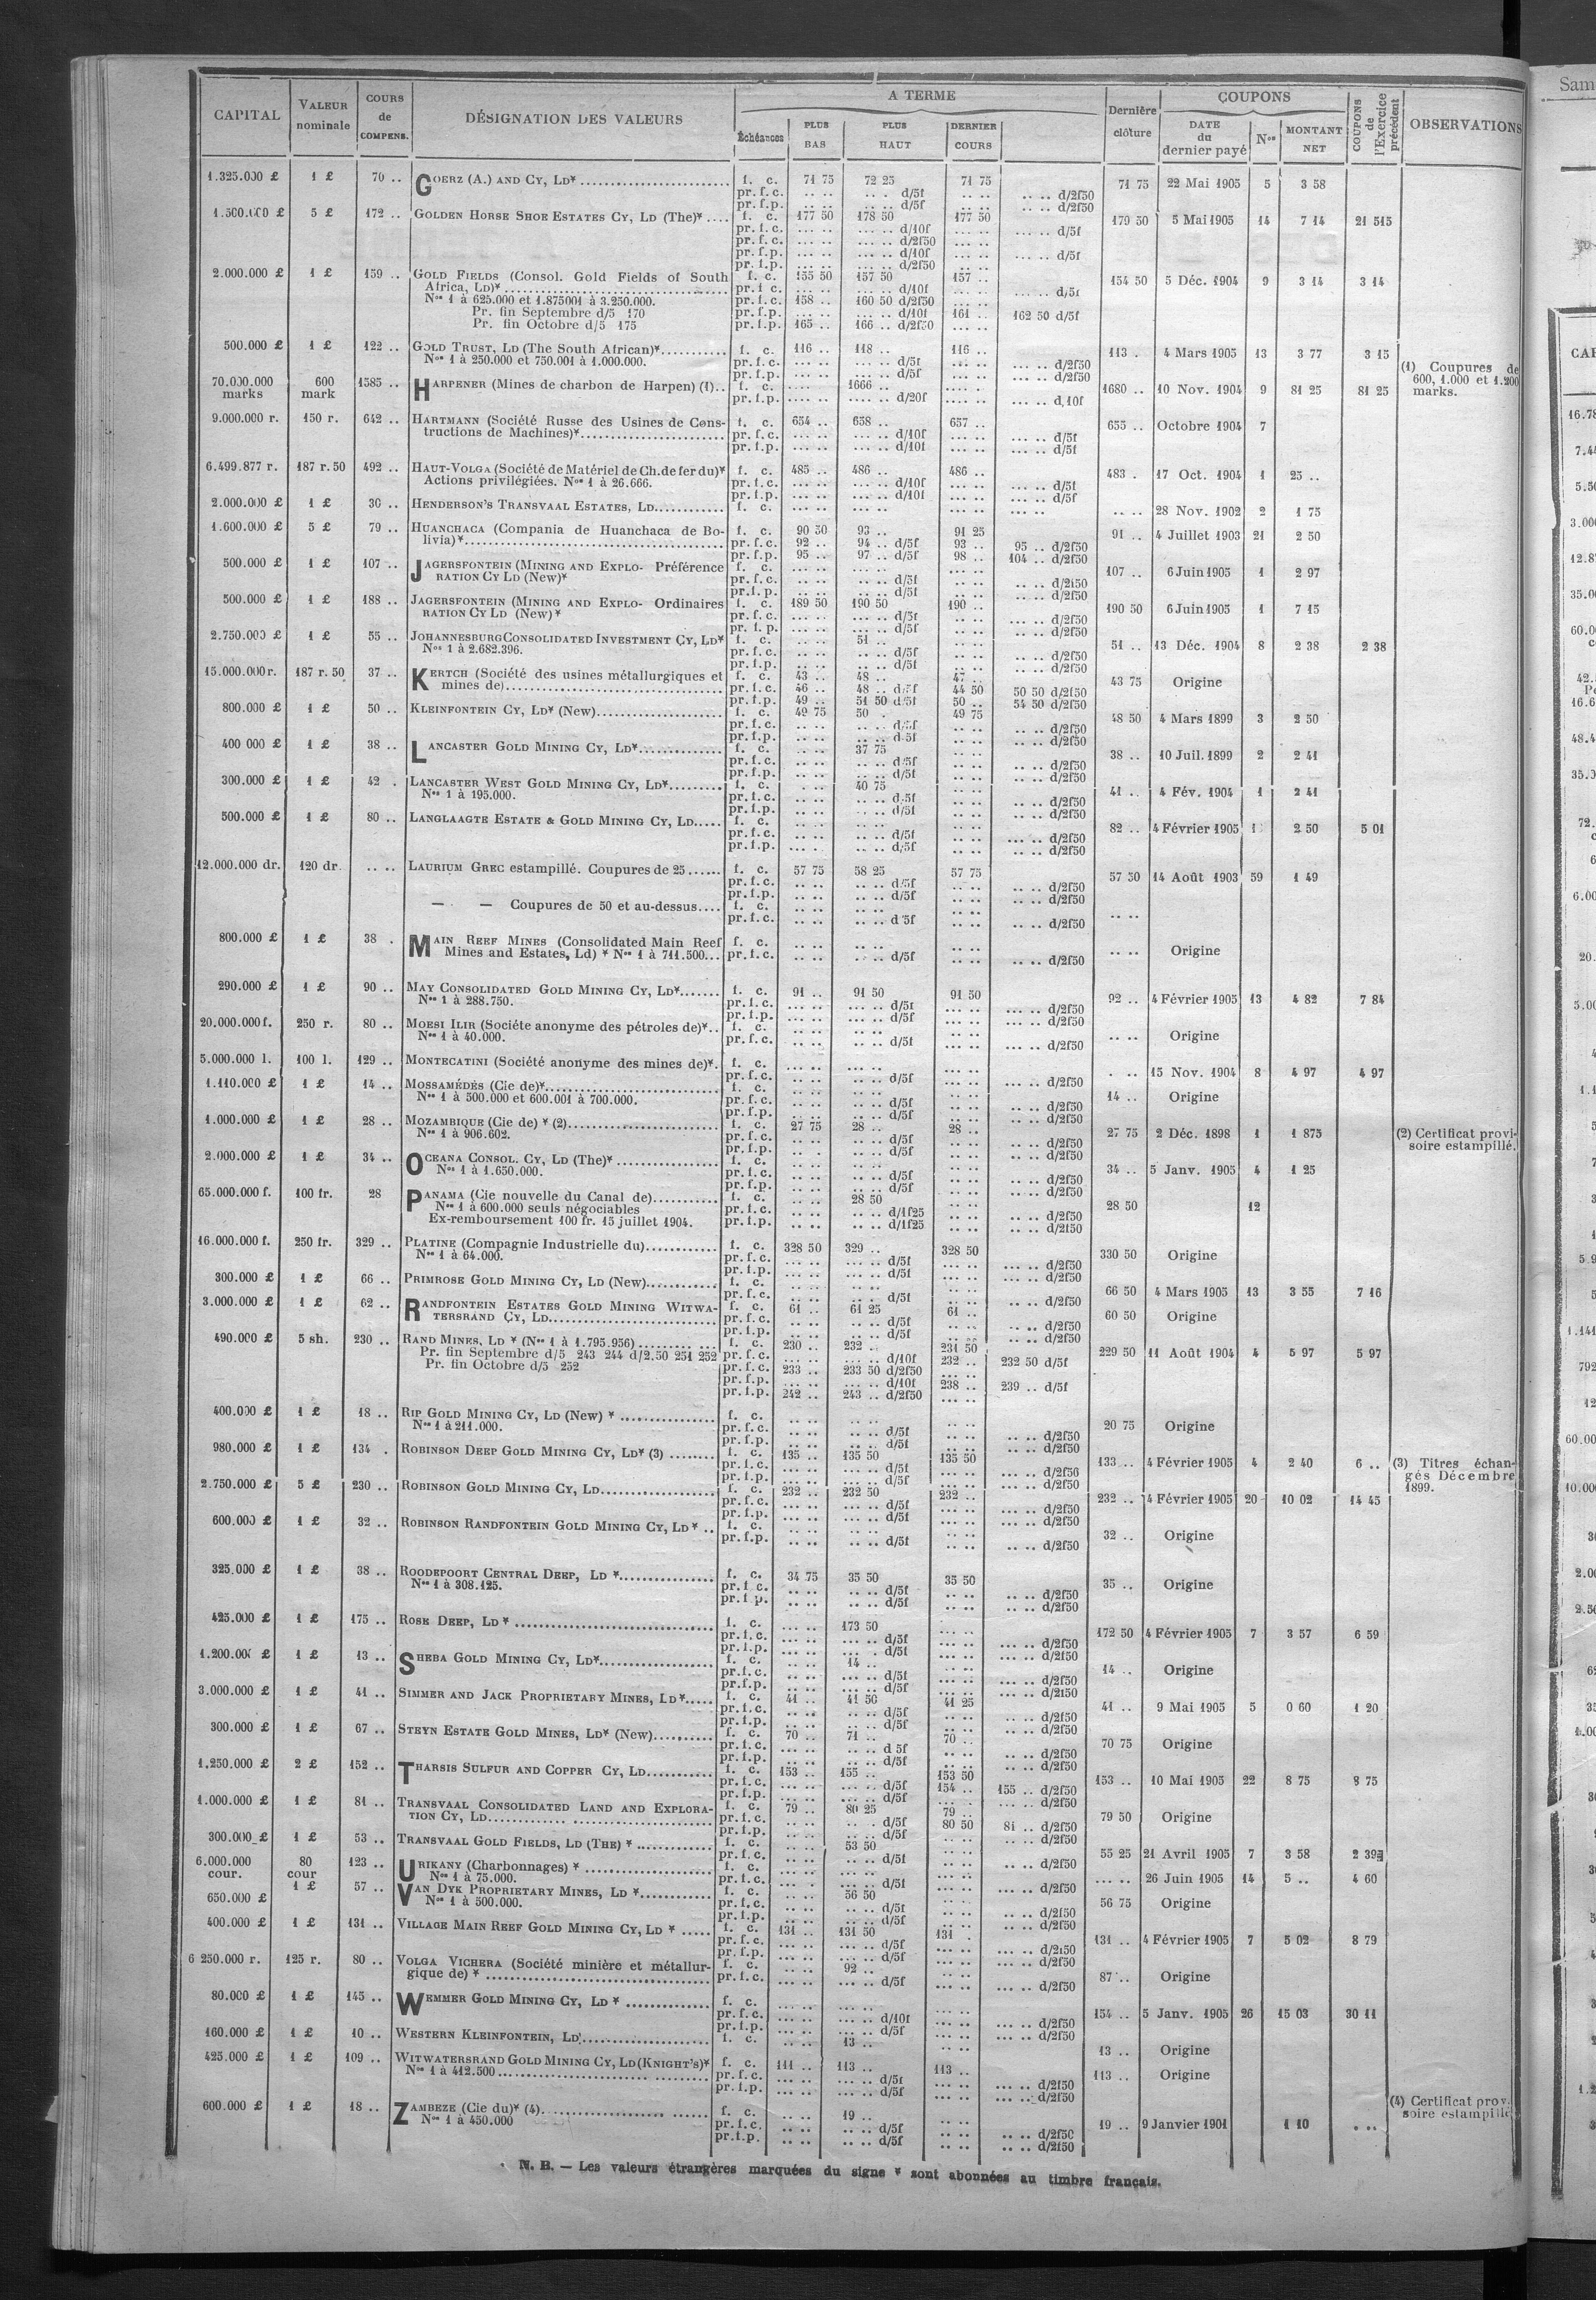 CAPITAL VALEUR nominale COURS de COMPENS. DÉSIGNATION DES VALEURS A TERME Échéances PLUS BAS PLUS HAUT DERNIER COURS Dernière clôture COUPONS DATE du dernier payé Nos MONTANT NET COUPONS de l'Exercice précédent OBSERVATIONS
1.325.000 £ 1 £ 70 .. GOERZ (A.) AND CY, LD* f. c. 71 75 72 25 71 75 71 75 22 Mai 1905 5 3 58
pr. f. c. .. .. .. . d/5f .. .. .. .. d/2f50
pr. f.p. .. .. .. .. d/5f .. .. .. .. d/2f50
1.500.000 £ 5 £ 172 .. GOLDEN HORSE SHOE ESTATES CY, LD (The)* .... f. c. 177 50 178 50 177 50 179 50 5 Mai 1905 14 7 14 21 515
pr. f. c. ... .. ... .. d/10f ... .. ... .. d/5f
pr. f. c. ... .. ... .. d/2f50
pr. f.p. ... .. ... .. d/10f ... .. ... .. d/5f
pr. f.p. ... .. ... .. d/2f50
2.000.000 £ 1 £ 159 .. GOLD FIELDS (Consol. Gold Fields of South f. c. 155 50 157 50 157 .. 154 50 5 Déc. 1904 9 3 14 3 14
Africa, LD)* pr. f. c. ... .. ... .. d/10f ... .. ... .. d/5f
Nos 1 à 625.000 et 1.875001 à 3.250.000. pr. f. c. 158 .. 160 50 d/2f50
Pr. fin Septembre d/5 170 pr. f.p. ... .. ... .. d/10f 161 .. 162 50 d/5f
Pr. fin Octobre d/5 175 pr. f.p. 165 .. 166 .. d/2f50
500.000 £ 1 £ 122 .. GOLD TRUST, LD (The South African)* f. c. 116 .. 118 .. 116 .. 113 . 4 Mars 1905 13 3 77 3 15
Nos 1 à 250.000 et 750.001 à 1.000.000. pr. f. c. ... .. ... .. d/5f ... .. ... .. d/2f50
pr. f.p. ... .. ... .. d/5f ... .. ... .. d/2f50
70.000.000 marks 600 mark 1585 .. HARPENER (Mines de charbon de Harpen) (1).. f. c. .... .. 1666 .. 1680 .. 10 Nov. 1904 9 81 25 81 25 (1) Coupures de 600, 1.000 et 1.200 marks.
pr. f.p. .... .. .... .. d/20f ... .. d,10f
9.000.000 r. 150 r. 642 .. HARTMANN (Société Russe des Usines de Cons- f. c. 654 .. 658 .. 657 .. 655 .. Octobre 1904 7
tructions de Machines)* pr. f. c. ... .. ... .. d/10f ... .. ... .. d/5f
pr. f.p. ... .. ... .. d/10f ... .. ... .. d/5f
6.499.877 r. 187 r. 50 492 .. HAUT-VOLGA (Société de Matériel de Ch. de fer du)* f. c. 485 .. 486 .. 486 .. 483 . 17 Oct. 1904 1 25 ..
Actions privilégiées. Nos 1 à 26.666. pr. f. c. ... .. ... .. d/10f ... .. ... .. d/5f
pr. f.p. ... .. ... .. d/10f ... .. ... .. d/5f
2.000.000 £ 1 £ 30 .. HENDERSON'S TRANSVAAL ESTATES, LD f. c. ... .. ... .. ... .. ... .. .. .. 28 Nov. 1902 2 1 75
1.600.000 £ 5 £ 79 .. HUANCHACA (Compania de Huanchaca de Bo- f. c. 90 50 93 .. 91 25 91 .. 4 Juillet 1903 21 2 50
livia)* pr. f. c. 92 .. 94 .. d/5f 93 .. 95 .. d/2f50
pr. f.p. 95 .. 97 .. d/5f 98 .. 104 .. d/2f50
500.000 £ 1 £ 107 .. JAGERSFONTEIN (MINING AND EXPLO- Préférence f. c. ... .. ... .. ... .. 107 .. 6 Juin 1905 1 2 97
RATION CY LD (New)* pr. f. c. ... .. ... .. d/5f ... .. ... .. d/2f50
pr. f.p. ... .. ... .. d/5f ... .. ... .. d/2f50
500.000 £ 1 £ 188 .. JAGERSFONTEIN (MINING AND EXPLO- Ordinaires f. c. 189 50 190 50 190 .. 190 50 6 Juin 1905 1 7 15
RATION CY LD (New)* pr. f. c. ... .. ... .. d/5f .. .. .. .. d/2f50
pr. f. p. ... .. ... .. d/5f .. .. .. .. d/2f50
2.750.000 £ 1 £ 55 .. JOHANNESBURG CONSOLIDATED INVESTMENT CY, LD* f. c. .. .. 51 .. .. .. 51 .. 13 Déc. 1904 8 2 38 2 38
Nos 1 à 2.682.396. pr. f. c. .. .. .. .. d/5f .. .. .. .. d/2f50
pr. f.p. .. .. .. .. d/5f .. .. .. .. d/2f50
15.000.000 r. 187 r. 50 37 .. KERTCH (Société des usines métallurgiques et f. c. 43 .. 48 .. 47 .. 43 75 Origine
mines de) pr. f. c. 46 .. 48 .. d/5f 44 50 50 50 d/2f50
pr. f.p. 49 .. 51 50 d/5f 50 .. 54 50 d/2f50
800.000 £ 1 £ 50 .. KLEINFONTEIN CY, LD* (New) f. c. 49 75 50 . 49 75 48 50 4 Mars 1899 3 2 50
pr. f. c. .. .. .. .. d/5f .. .. .. .. d/2f50
pr. f.p. .. .. .. .. d/5f .. .. .. .. d/2f50
400 000 £ 1 £ 38 .. LANCASTER GOLD MINING CY, LD* f. c. .. .. 37 75 .. .. 38 .. 10 Juil. 1899 2 2 41
pr. f. c. .. .. .. .. d/5f .. .. .. .. d/2f50
pr. f.p. .. .. .. .. d/5f .. .. .. .. d/2f50
300.000 £ 1 £ 42 . LANCASTER WEST GOLD MINING CY, LD* f. c. .. .. 40 75 .. .. 41 .. 4 Fév. 1904 1 2 41
Nos 1 à 195.000. pr. f. c. .. .. .. .. d/5f .. .. .. .. d/2f50
pr. f.p. .. .. .. .. d/5f .. .. .. .. d/2f50
500.000 £ 1 £ 80 .. LANGLAAGTE ESTATE & GOLD MINING CY, LD f. c. .. .. .. .. .. .. 82 .. 4 Février 1905 2 50 5 01
pr. f. c. .. .. .. .. d/5f .. .. ... .. d/2f50
pr. f.p. ... .. .. .. d/5f .. .. ... .. d/2f50
12.000.000 dr. 120 dr. .. .. LAURIUM GREC estampillé. Coupures de 25 f. c. 57 75 58 25 57 75 57 50 14 Août 1903 59 1 49
pr. f. c. .. .. .. .. d/5f .. .. .. .. d/2f50
pr. f.p. .. .. .. .. d/5f .. .. .. .. d/2f50
— — Coupures de 50 et au-dessus.... f. c. .. .. .. .. .. .. .. ..
pr. f. c. .. .. .. .. d/5f .. .. .. .. d/2f50
800.000 £ 1 £ 38 . MAIN REEF MINES (Consolidated Main Reef f. c. .. .. .. .. .. .. .. .. Origine
Mines and Estates, Ld) * Nos 1 à 711.500... pr. f. c. .. .. .. .. d/5f .. .. .. .. d/2f50
290.000 £ 1 £ 90 .. MAY CONSOLIDATED GOLD MINING CY, LD* f. c. 91 .. 91 50 91 50 92 .. 4 Février 1905 13 4 82 7 84
Nos 1 à 288.750. pr. f. c. ... .. ... .. d/5f ... .. ... .. d/2f50
pr. f.p. ... .. ... .. d/5f ... .. ... .. d/2f50
20.000.000 f. 250 r. 80 .. MOESI ILIR (Sociéte anonyme des pétroles de)* .. f. c. .. .. .. .. .. .. .. .. Origine
Nos 1 à 40.000. pr. f. c. .. .. .. .. d/5f .. .. ... .. d/2f50
5.000.000 l. 100 l. 129 .. MONTECATINI (Société anonyme des mines de)*. f. c. ... .. ... .. ... .. . .. 15 Nov. 1904 8 4 97 4 97
pr. f. c. .. .. .. .. d/5f ... .. ... .. d/2f50
1.110.000 £ 1 £ 14 .. MOSSAMÉDÈS (Cie de)* f. c. .. .. .. .. .. .. 14 .. Origine
Nos 1 à 500.000 et 600.001 à 700.000. pr. f. c. .. .. .. .. d/5f .. .. .. .. d/2f50
pr. f.p. .. .. .. .. d/5f .. .. .. .. d/2f50
1.000.000 £ 1 £ 28 .. MOZAMBIQUE (Cie de) * (2) f. c. 27 75 28 .. 28 .. 27 75 2 Déc. 1898 1 1 875 (2) Certificat provi-
Nos 1 à 906.602. pr. f. c. .. .. .. .. d/5f .. .. .. .. d/2f50 soire estampillé.
pr. f.p. .. .. .. .. d/5f .. .. .. .. d/2f50
2.000.000 £ 1 £ 34 .. OCEANA CONSOL. CY, LD (The)* f. c. .. .. .. .. .. .. 34 .. 5 Janv. 1905 4 1 25
Nos 1 à 1.650.000. pr. f. c. .. .. .. .. d/5f .. .. .. .. d/2f50
pr. f.p. .. .. .. .. d/5f .. .. .. .. d/2f50
65.000.000 f. 100 fr. 28 PANAMA (Cie nouvelle du Canal de) f. c. .. .. 28 50 .. .. 28 50 12
Nos 1 à 600.000 seuls négociables pr. f. c. .. .. .. .. d/1f25 .. .. .. .. d/2f50
Ex-remboursement 100 fr. 15 juillet 1904. pr. f.p. .. .. .. .. d/1f25 .. .. .. .. d/2f50
16.000.000 f. 250 fr. 329 .. PLATINE (Compagnie Industrielle du) f. c. 328 50 329 .. 328 50 330 50 Origine
Nos 1 à 64.000. pr. f. c. ... .. ... .. d/5f ... .. ... .. d/2f50
pr. f.p. ... .. ... .. d/5f ... .. ... .. d/2f50
300.000 £ 1 £ 66 .. PRIMROSE GOLD MINING CY, LD (New) f. c. .. .. .. .. .. .. 66 50 4 Mars 1905 13 3 55 7 16
pr. f. c. .. .. .. .. d/5f .. .. .. .. d/2f50
3.000.000 £ 1 £ 62 .. RANDFONTEIN ESTATES GOLD MINING WITWA- f. c. 61 .. 61 25 61 .. 60 50 Origine
TERSRAND CY, LD pr. f. c. .. .. .. .. d/5f .. .. .. .. d/2f50
pr. f.p. .. .. .. .. d/5f .. .. .. .. d/2f50
490.000 £ 5 sh. 230 .. RAND MINES, LD * (Nos 1 à 1.795.956) f. c. 230 .. 232 .. 231 50 229 50 11 Août 1904 4 5 97 5 97
Pr. fin Septembre d/5 243 244 d/2.50 251 252 pr. f. c. ... .. ... .. d/10f 232 .. 232 50 d/5f
Pr. fin Octobre d/5 252 pr. f. c. 233 .. 233 50 d/2f50 ... ..
pr. f.p. ... .. ... .. d/10f 238 .. 239 .. d/5f
pr. f.p. 242 .. 243 .. d/2f50 ... ..
400.000 £ 1 £ 18 .. RIP GOLD MINING CY, LD (New) * f. c. .. .. .. .. .. .. 20 75 Origine
Nos 1 à 211.000. pr. f. c. .. .. .. .. d/5f .. .. .. .. d/2f50
pr. f.p. .. .. .. .. d/5f .. .. .. .. d/2f50
980.000 £ 1 £ 134 . ROBINSON DEEP GOLD MINING CY, LD* (3) f. c. 135 .. 135 50 135 50 133 .. 4 Février 1905 4 2 40 6 .. (3) Titres échan-
pr. f. c. ... .. ... .. d/5f ... .. ... .. d/2f50 gés Décembre
pr. f.p. ... .. ... .. d/5f ... .. ... .. d/2f50 1899.
2.750.000 £ 5 £ 230 .. ROBINSON GOLD MINING CY, LD f. c. 232 .. 232 50 232 .. 232 .. 4 Février 1905 20 10 02 14 45
pr. f. c. ... .. ... .. d/5f ... .. ... .. d/2f50
pr. f.p. ... .. ... .. d/5f ... .. ... .. d/2f50
600.000 £ 1 £ 32 .. ROBINSON RANDFONTEIN GOLD MINING CY, LD * .. f. c. .. .. .. .. .. .. 32 .. Origine
pr. f.p. .. .. .. .. d/5f .. .. .. .. d/2f50
325.000 £ 1 £ 38 .. ROODEPOORT CENTRAL DEEP, LD * f. c. 34 75 35 50 35 50 35 .. Origine
Nos 1 à 308.125. pr. f. c. .. .. .. .. d/5f .. .. .. .. d/2f50
pr. f. p. .. .. .. .. d/5f .. .. .. .. d/2f50
425.000 £ 1 £ 175 .. ROSE DEEP, LD * f. c. ... .. 173 50 ... .. 172 50 4 Février 1905 7 3 57 6 59
pr. f. c. ... .. ... .. d/5f ... .. ... .. d/2f50
pr. f.p. ... .. ... .. d/5f ... .. ... .. d/2f50
1.200.000 £ 1 £ 13 .. SHEBA GOLD MINING CY, LD* f. c. .. .. 14 .. .. .. 14 .. Origine
pr. f. c. .. .. .. .. d/5f .. .. .. .. d/2f50
pr. f.p. .. .. .. .. d/5f .. .. .. .. d/2f50
3.000.000 £ 1 £ 41 .. SIMMER AND JACK PROPRIETARY MINES, LD* f. c. 41 .. 41 50 41 25 41 .. 9 Mai 1905 5 0 60 1 20
pr. f. c. .. .. .. .. d/5f .. .. .. .. d/2f50
pr. f.p. .. .. .. .. d/5f .. .. .. .. d/2f50
300.000 £ 1 £ 67 .. STEYN ESTATE GOLD MINES, LD* (New) f. c. 70 .. 71 .. 70 .. 70 75 Origine
pr. f. c. .. .. .. .. d 5f .. .. .. .. d/2f50
pr. f.p. .. .. .. .. d/5f .. .. .. .. d/2f50
1.250.000 £ 2 £ 152 .. THARSIS SULFUR AND COPPER CY, LD f. c. 153 .. 155 .. 153 50 153 .. 10 Mai 1905 22 8 75 8 75
pr. f. c. ... .. ... .. d/5f 154 .. 155 .. d/2f50
pr. f.p. ... .. ... .. d/5f ... .. ... .. d/2f50
1.000.000 £ 1 £ 81 .. TRANSVAAL CONSOLIDATED LAND AND EXPLORA- f. c. 79 .. 80 25 79 .. 79 50 Origine
TION CY, LD pr. f. c. .. .. .. . d/5f 80 50 81 .. d/2f50
pr. f.p. .. .. .. .. d/5f .. .. .. .. d/2f50
300.000 £ 1 £ 53 .. TRANSVAAL GOLD FIELDS, LD (THE) * f. c. .. .. 53 50 .. .. 55 25 21 Avril 1905 7 3 58 2 39
pr. f. c. .. .. .. .. d/5f .. .. .. .. d/2f50
6.000.000 cour. 80 cour 123 .. URIKANY (Charbonnages) * f. c. ... .. ... .. ... .. ... .. 26 Juin 1905 14 5 .. 4 60
Nos 1 à 75.000. pr. f. c. ... .. ... .. d/5f ... .. ... .. d/2f50
650.000 £ 1 £ 57 .. VAN DYK PROPRIETARY MINES, LD * f. c. .. .. 56 50 .. .. 56 75 Origine
Nos 1 à 500.000. pr. f. c. .. .. .. .. d/5f .. .. .. .. d/2f50
pr. f.p. .. .. .. .. d/5f .. .. .. .. d/2f50
400.000 £ 1 £ 131 .. VILLAGE MAIN REEF GOLD MINING CY, LD * f. c. 131 .. 131 50 131 . 131 .. 4 Février 1905 7 5 02 8 79
pr. f. c. ... .. ... .. d/5f ... .. ... .. d/2f50
pr. f.p. ... .. ... .. d/5f ... .. ... .. d/2f50
6 250.000 r. 125 r. 80 .. VOLGA VICHERA (Société minière et métallur- f. c. ... .. 92 .. .. .. 87 .. Origine
gique de) * pr. f. c. ... .. ... .. d/5f ... .. ... .. d/2f50
80.000 £ 1 £ 145 .. WEMMER GOLD MINING CY, LD * f. c. ... .. ... .. ... .. 154 .. 5 Janv. 1905 26 15 03 30 11
pr. f. c. ... .. ... .. d/10f ... .. ... .. d/2f50
pr. f.p. ... .. ... .. d/5f ... .. ... .. d/2f50
160.000 £ 1 £ 10 .. WESTERN KLEINFONTEIN, LD f. c. .. .. 13 .. .. .. 13 .. Origine
425.000 £ 1 £ 109 .. WITWATERSRAND GOLD MINING CY, LD (KNIGHT'S)* f. c. 111 .. 113 .. 113 .. 113 .. Origine
Nos 1 à 412.500 pr. f. c. ... .. ... .. d/5f ... .. ... .. d/2f50
pr. f.p. ... .. ... .. d/5f ... .. ... .. d/2f50
600.000 £ 1 £ 18 .. ZAMBEZE (Cie du)* (4) f. c. .. .. 19 .. .. .. 19 .. 9 Janvier 1901 1 10 . .. (4) Certificat prov.
Nos 1 à 450.000 pr. f. c. .. .. .. .. d/5f .. .. .. .. d/2f50 soire estampillé
pr. f.p. .. .. .. .. d/5f .. .. .. .. d/2f50
N. B. — Les valeurs étrangères marquées du signe * sont abonnées au timbre français.